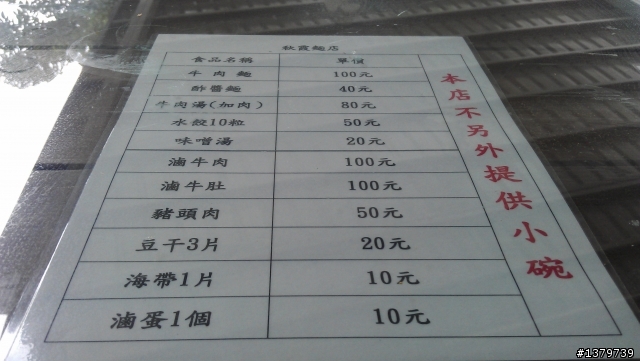 秋霞麵店
食品名稱 單價
牛肉麵 100元
酢醬麵 40元
牛肉湯(加肉) 80元
水餃10粒 50元
味噌湯 20元
滷牛肉 100元
滷牛肚 100元
豬頭肉 50元
豆干3片 20元
海帶1片 10元
滷蛋1個 10元
本店不另外提供小碗
#1379739